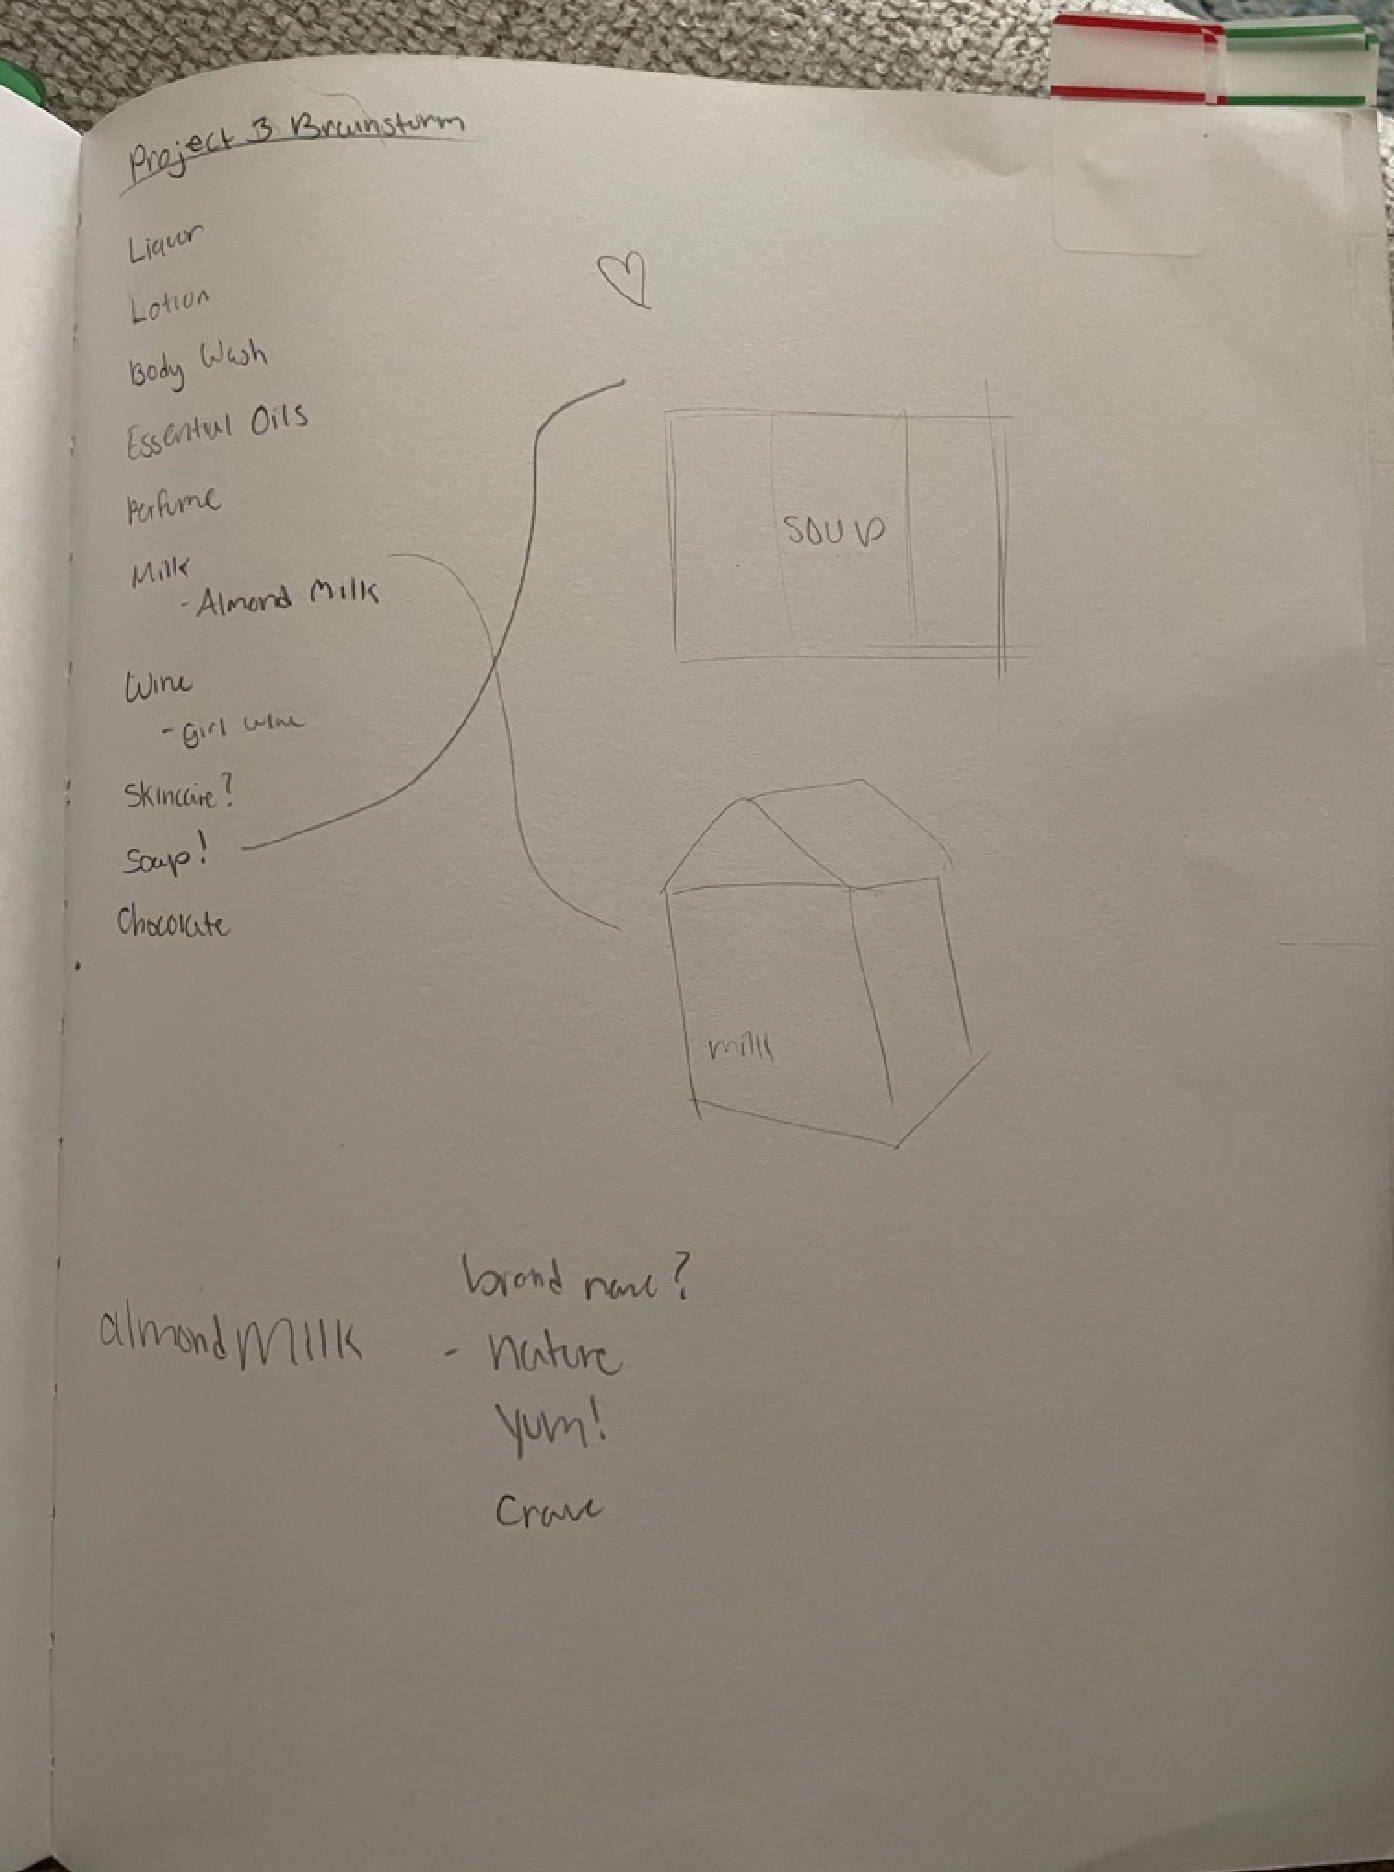 Project 3 Brainstorm
Liquor
Lotion
Body Wash
Essential Oils
Perfume
Milk
- Almond Milk
Wine
- Girl wine
Skincare?
Soup!
Chocolate
soup
milk
almond Milk
brand name?
- nature
yum!
Crave